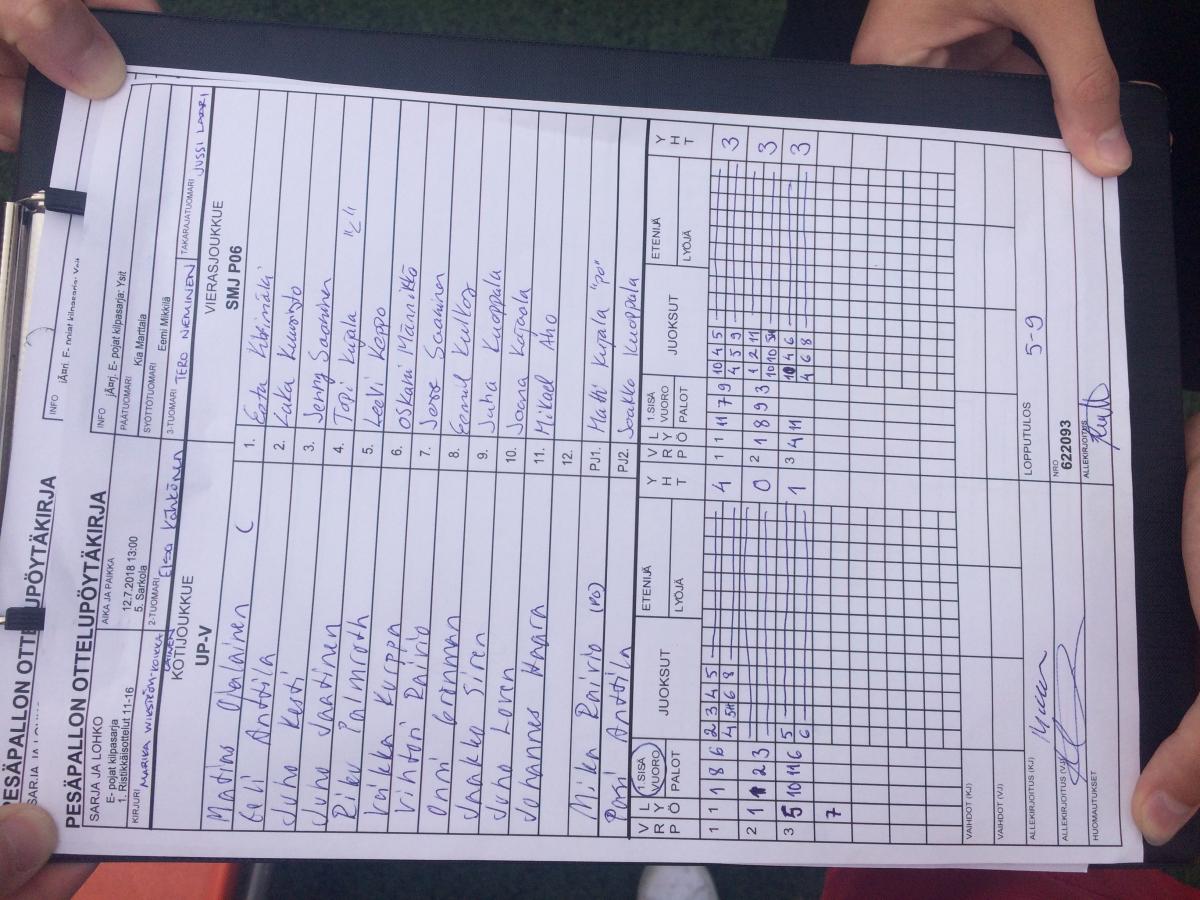 PESÄPALLON OTTELUPÖYTÄKIRJA
SARJA JA LOHKO
INFO
PESÄPALLON OTTELUPÖYTÄKIRJA
SARJA JA LOHKO
E- pojat kilpasarja
1. Ristikkäisottelut 11-16
AIKA JA PAIKKA
12.7.2018 13:00
5. Sarkola
INFO
E- pojat kilpasarja: Ysit
PÄÄTUOMARI
Kia Marttala
SYÖTTÖTUOMARI
Eemi Mikkilä
KIRJURI
MARIKA
2-TUOMARI
Elsa Kähkönen
3-TUOMARI
TERO NIEMINEN
TAKARAJATUOMARI
JUSSI LAARI
KOTIJOUKKUE VIERASJOUKKUE
UP-V SMJ P06
Matias Ojalainen ( 1. Eetu
Eeli Anttila 2. Kaka
Juho Kesti 3. Jenny Saarinen
Juho Vaatinen 4. Topi Kujala "L"
Riku Palmroth 5. Leevi Keppo
Veikka Kurppa 6. Oskari Männikkö
Vihtori Rairio 7. Jesse Saarinen
Onni Groman 8. Eemil
Jaakko Siren 9. Juha Kuoppala
Juho Loven 10. Joona Kujaala
Johannes Haara 11. Mikael Aho
12.
Mika Rairio (PO) PJ1. Matti Kujala "PO"
Pasi Anttila PJ2. Jaakko Kuoppala
VRP LYÖ 1.SISÄ VUORO PALOT JUOKSUT ETENIJÄ LYÖJÄ YHT VRP LYÖ 1.SISÄ VUORO PALOT JUOKSUT ETENIJÄ LYÖJÄ YHT
1 1 1 8 6 2 3 4 5 4 1 1 11 7 9 10 4 5 3
4 5K 6 8 4 5 9
2 1 1 2 3 0 2 1 8 9 3 1 2 11 3
10 10
3 5 10 11 6 5 1 3 4 11 10 4 6 3
6 4 6 8
7
VAIHDOT (KJ)
VAIHDOT (VJ)
ALLEKIRJOITUS (KJ)
LOPPUTULOS
5-9
ALLEKIRJOITUS (VJ)
NRO
622093
HUOMAUTUKSET
ALLEKIRJOITUS